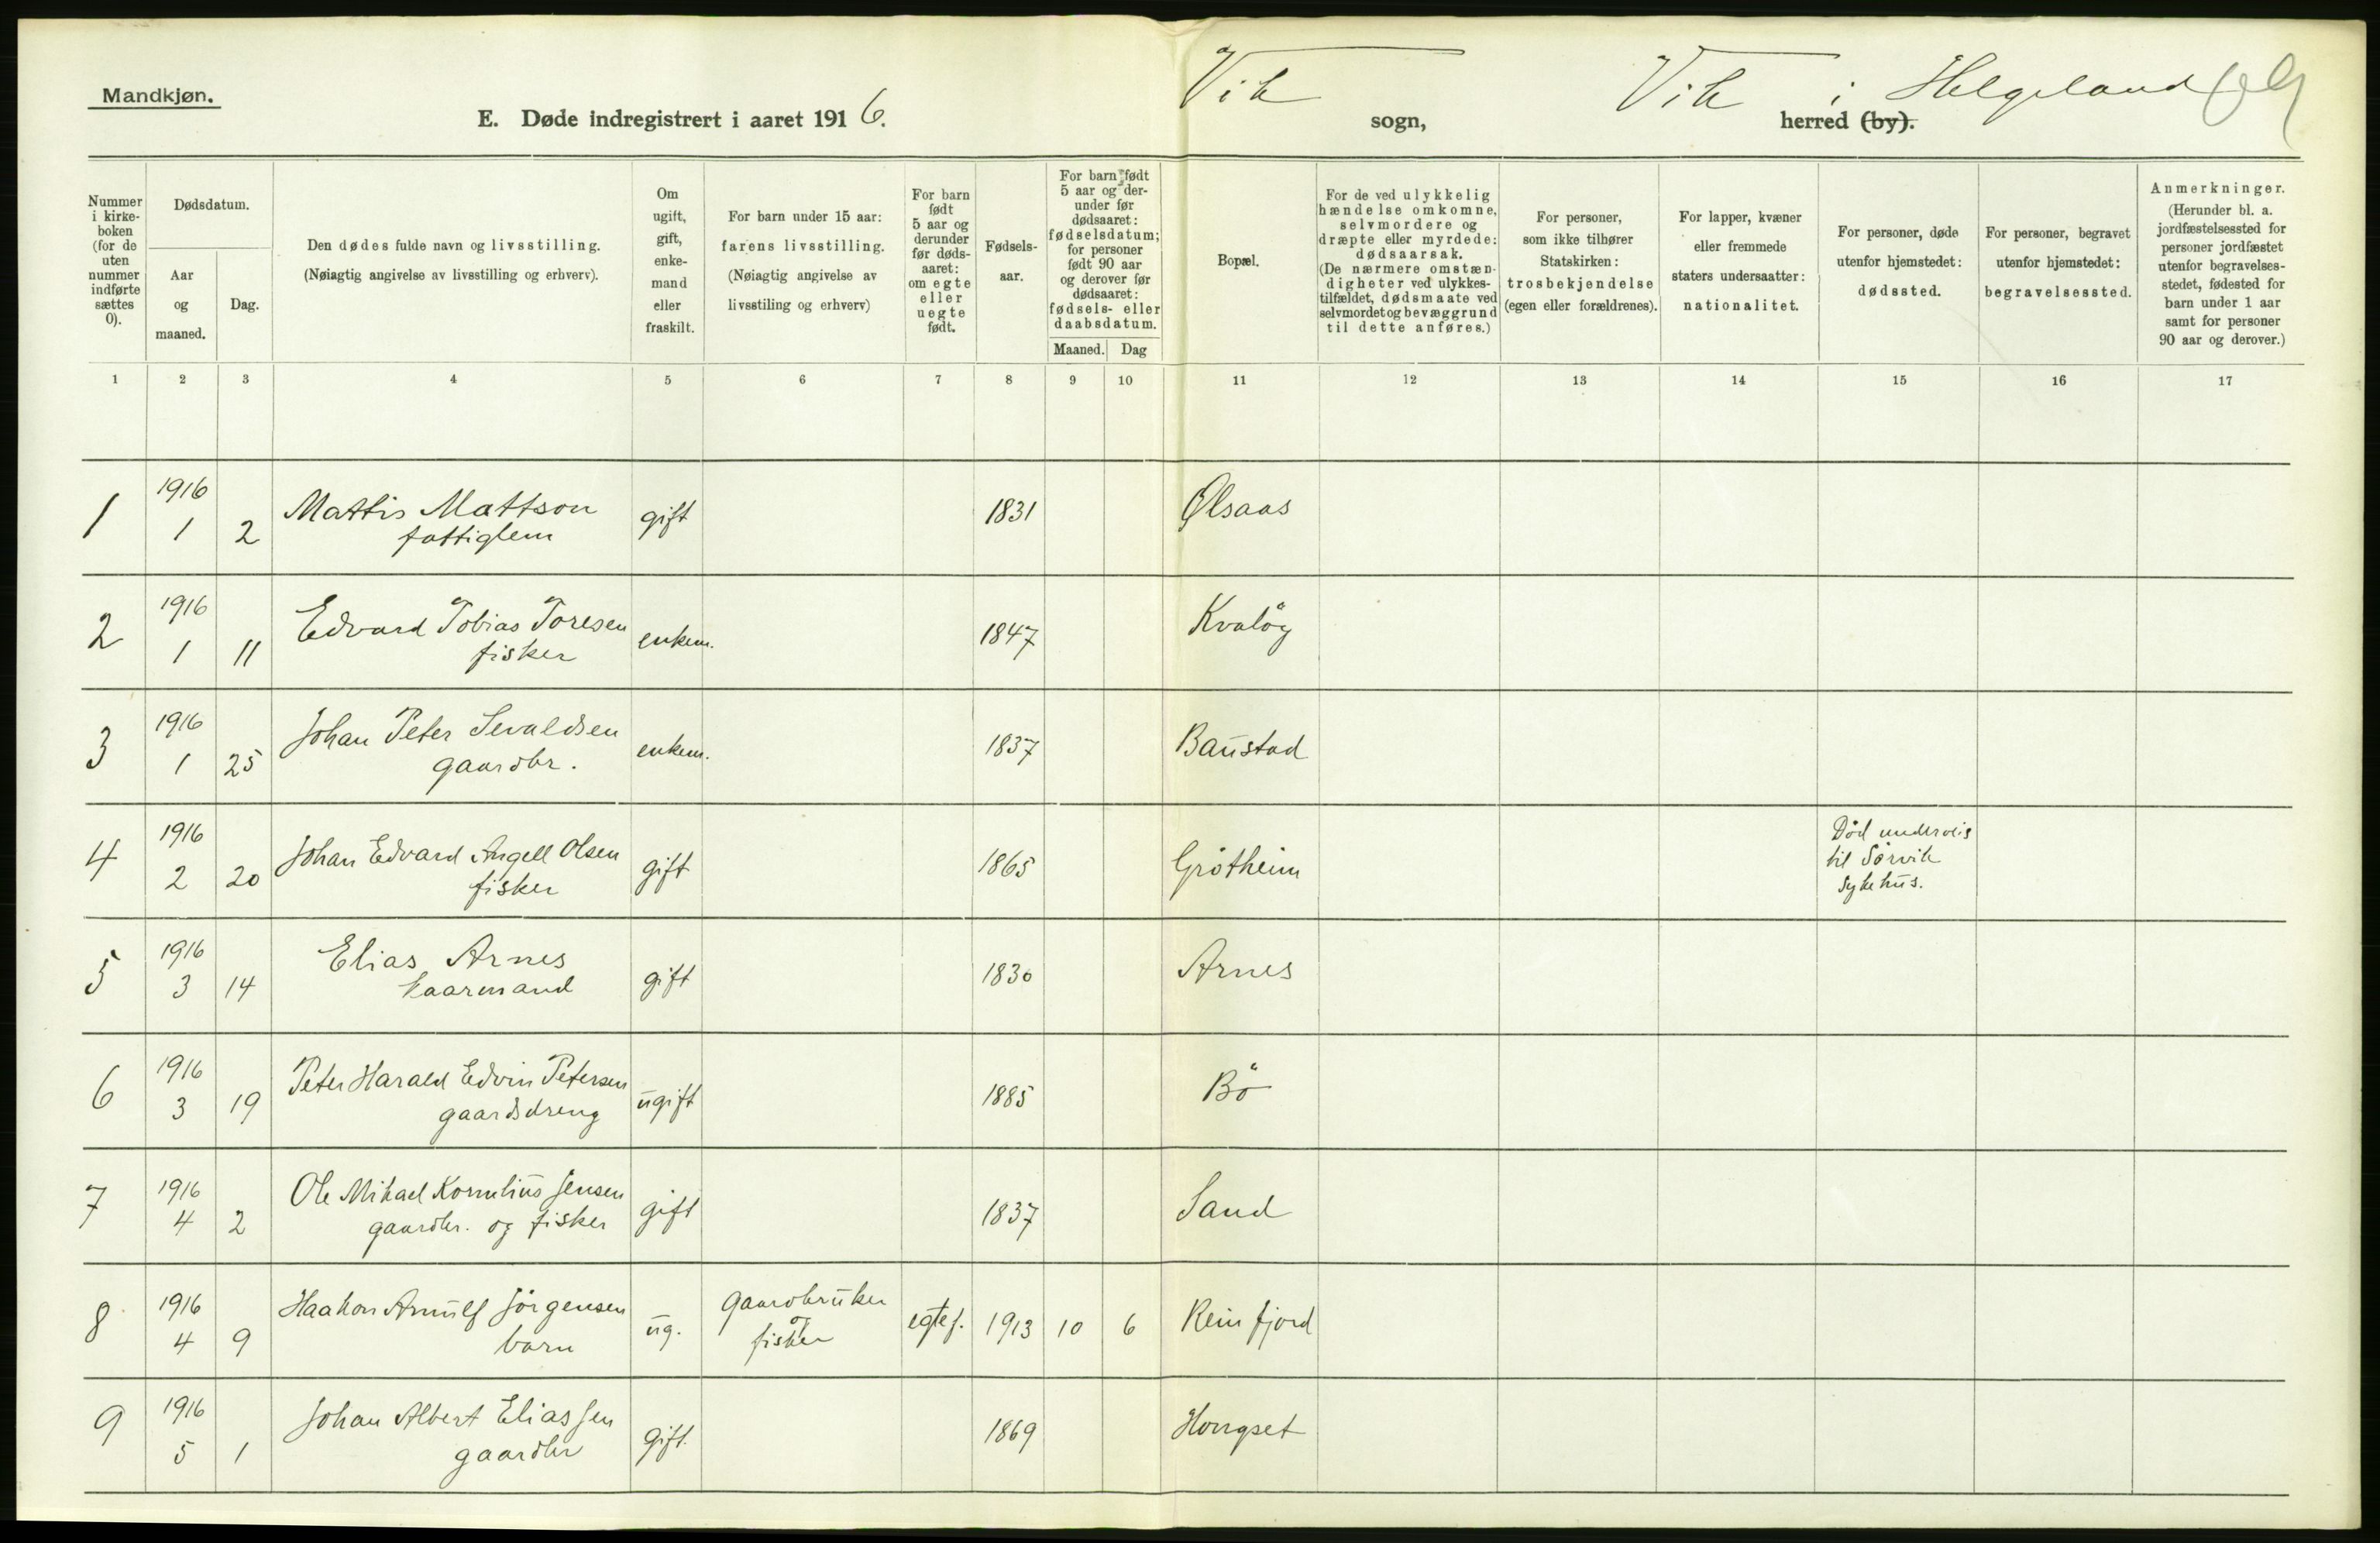 Mandkjøn.
E. Døde indregistrert i aaret 1916.
Vik sogn, Vik i Helgeland herred (by).
Nummer i kirke-boken (for de uten nummer indførte sættes 0).
Dødsdatum.
Aar og maaned.
Dag.
Den dødes fulde navn og livsstilling.
(Nøiagtig angivelse av livsstilling og erhverv).
Om ugift, gift, enke-mand eller fraskilt.
For barn under 15 aar: farens livsstilling.
(Nøiagtig angivelse av livsstiling og erhverv)
For barn født 5 aar og derunder før døds-aaret: om egte eller uegte født.
Fødsels-aar.
For barn født 5 aar og der-under før dødsaaret: fødselsdatum; for personer født 90 aar og derover før dødsaaret: fødsels- eller daabsdatum.
Maaned. Dag
Bopæl.
For de ved ulykkelig hændelse omkomne, selvmordere og dræpte eller myrdede: dødsaarsak.
(De nærmere omstæn-digheter ved ulykkes-tilfældet, dødsmaate ved selvmordet og bevæggrund til dette anføres.)
For personer, som ikke tilhører Statskirken: trosbekjendelse (egen eller forældrenes).
For lapper, kvæner eller fremmede staters undersaatter: nationalitet.
For personer, døde utenfor hjemstedet: dødssted.
For personer, begravet utenfor hjemstedet: begravelsessted.
Anmerkninger.
(Herunder bl. a. jordfæstelsessted for personer jordfæstet utenfor begravelses-stedet, fødested for barn under 1 aar samt for personer 90 aar og derover.)
1 2 3 4 5 6 7 8 9 10 11 12 13 14 15 16 17
1 1916 1 2 Mattis Mattson fattiglem gift 1831 Ølsaas
2 1916 1 11 Edvard Tobias Toresen fisker enkem. 1847 Kvaløy
3 1916 1 25 Johan Peter Sevaldsen gaardbr. enkem. 1837 Baustad
4 1916 2 20 Johan Edvard Angell Olsen fisker gift 1865 Grøtheim Død underveis til Sørvik sykehus.
5 1916 3 14 Elias Arnes kaarmand gift 1830 Arnes
6 1916 3 19 Peter Harald Edvin Petersen gaardsdreng ugift 1885 Bø
7 1916 4 2 Ole Mikael Kornelius Jensen gaardbr. og fisker gift 1837 Sand
8 1916 4 9 Haakon Arnulf Jørgensen barn ug. gaardbruker og fisker egtef. 1913 10 6 Reinfjord
9 1916 5 1 Johan Albert Eliassen gaardbr gift. 1869 Hongset